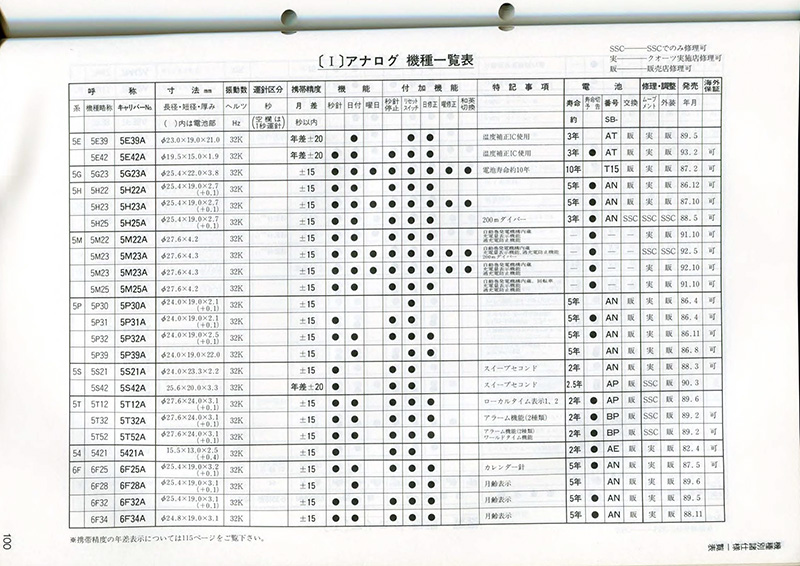 SSC――SSCでのみ修理可
実――クオーツ実施店修理可
販――販売店修理可
〔Ⅰ〕アナログ 機種一覧表
呼称 寸法 mm 振動数 運針区分 携帯精度 機能 付加機能 特記事項 電池 修理・調整 発売 海外保証
系 機種略称 キャリバーNo. 長径・短径・厚み ヘルツ 秒 月差 秒針 日付 曜日 秒針停止 リセットスイッチ 日修正 曜修正 和英切換 寿命 寿命切予告 番号 交換 ムーブメント 外装 年月
( )内は電池部 Hz (空欄は1秒運針) 秒以内 約 SB-
5E 5E39 5E39A φ23.0×19.0×21.0 32K 年差±20 ● ● ● 温度補正IC使用 3年 AT 販 実 販 89.5
5E42 5E42A φ19.5×15.0×1.9 32K 年差±20 ● ● ● ● ● 温度補正IC使用 3年 ● AT 販 実 販 93.2 可
5G 5G23 5G23A φ25.4×22.0×3.8 32K ±15 ● ● ● ● ● ● ● ● 電池寿命約10年 10年 T15 販 実 販 87.2 可
5H 5H22 5H22A φ25.4×19.0×2.7 (+0.1) 32K ±15 ● ● ● ● ● 5年 ● AN 販 実 販 86.12 可
5H23 5H23A φ25.4×19.0×2.7 (+0.1) 32K ±15 ● ● ● ● ● ● ● ● 5年 ● AN 販 実 販 87.10 可
5H25 5H25A φ25.4×19.0×2.7 (+0.1) 32K ±15 ● ● ● ● ● 200mダイバー 3年 ● AN SSC SSC SSC 88.5 可
5M 5M22 5M22A φ27.6×4.2 32K ±15 ● ● ● ● ● 自動巻発電機構内蔵 充電量表示機能 過充電防止機能 ― ● ― ― 実 販 91.10 可
5M23 5M23A φ27.6×4.3 32K ±15 ● ● ● ● ● ● ● ● 自動巻発電機構内蔵 充電量表示機能,過充電防止機能 200mダイバー ― ● ― ― SSC SSC 92.5 可
5M23 5M23A φ27.6×4.3 32K ±15 ● ● ● ● ● ● ● ● 自動巻発電機構内蔵 充電量表示機能 過充電防止機能 ― ● ― ― 実 販 92.10 可
5M25 5M25A φ27.6×4.2 32K ±15 ● ● ● ● ● 自動巻発電機構内蔵、回転車 充電量表示機能 過充電防止機能 ― ● ― ― 実 販 91.10 可
5P 5P30 5P30A φ24.0×19.0×2.1 (+0.1) 32K ±15 ● 5年 AN 販 実 販 86.4 可
5P31 5P31A φ24.0×19.0×2.1 (+0.1) 32K ±15 ● ● ● 5年 ● AN 販 実 販 86.4 可
5P32 5P32A φ24.0×19.0×2.5 (+0.1) 32K ±15 ● ● ● ● ● 5年 ● AN 販 実 販 86.11 可
5P39 5P39A φ24.0×19.0×22.0 32K ±15 ● ● ● 5年 AN 販 実 販 86.8 可
5S 5S21 5S21A φ24.0×23.3×2.2 32K ±15 ● ● ● スイープセコンド 2年 AN 販 実 販 88.3 可
5S42 5S42A 25.6×20.0×3.3 32K 年差±20 ● ● ● スイープセコンド 2.5年 AP 販 SSC 販 90.3
5T 5T12 5T12A φ27.6×24.0×3.1 (+0.1) 32K ±15 ● ● ● ● ● ローカルタイム表示1,2 2年 ● AP 販 SSC 販 89.6
5T32 5T32A φ27.6×24.0×3.1 (+0.1) 32K ±15 ● ● ● ● ● アラーム機能(2種類) 2年 ● BP 販 SSC 販 89.2 可
5T52 5T52A φ27.6×24.0×3.1 (+0.1) 32K ±15 ● ● ● ● ● アラーム機能(2種類) ワールドタイム機能 2年 ● BP 販 SSC 販 89.2 可
54 5421 5421A 15.5×13.0×2.5 (+0.4) 32K ±15 ● ● ● 2年 ● AE 販 実 販 82.4 可
6F 6F25 6F25A φ25.4×19.0×3.2 (+0.1) 32K ±15 ● ● ● ● ● カレンダー針 5年 ● AN 販 実 販 87.5 可
6F28 6F28A φ25.4×19.0×3.1 (+0.1) 32K ±15 ● ● ● 月齢表示 5年 AN 販 実 販 89.6
6F32 6F32A φ25.4×19.0×3.1 (+0.1) 32K ±15 ● ● ● ● ● 月齢表示 5年 ● AN 販 実 販 89.5
6F34 6F34A φ24.8×19.0×3.1 32K ±15 ● ● ● ● ● 月齢表示 5年 ● AN 販 実 販 88.11 可
※携帯精度の年差表示については115ページをご覧下さい。
100
機種別諸仕様一覧表